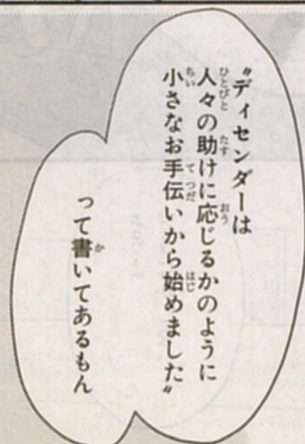 〝ディセンダーは
人々の助けに応じるかのように
小さなお手伝いから始めました〟
って書いてあるもん